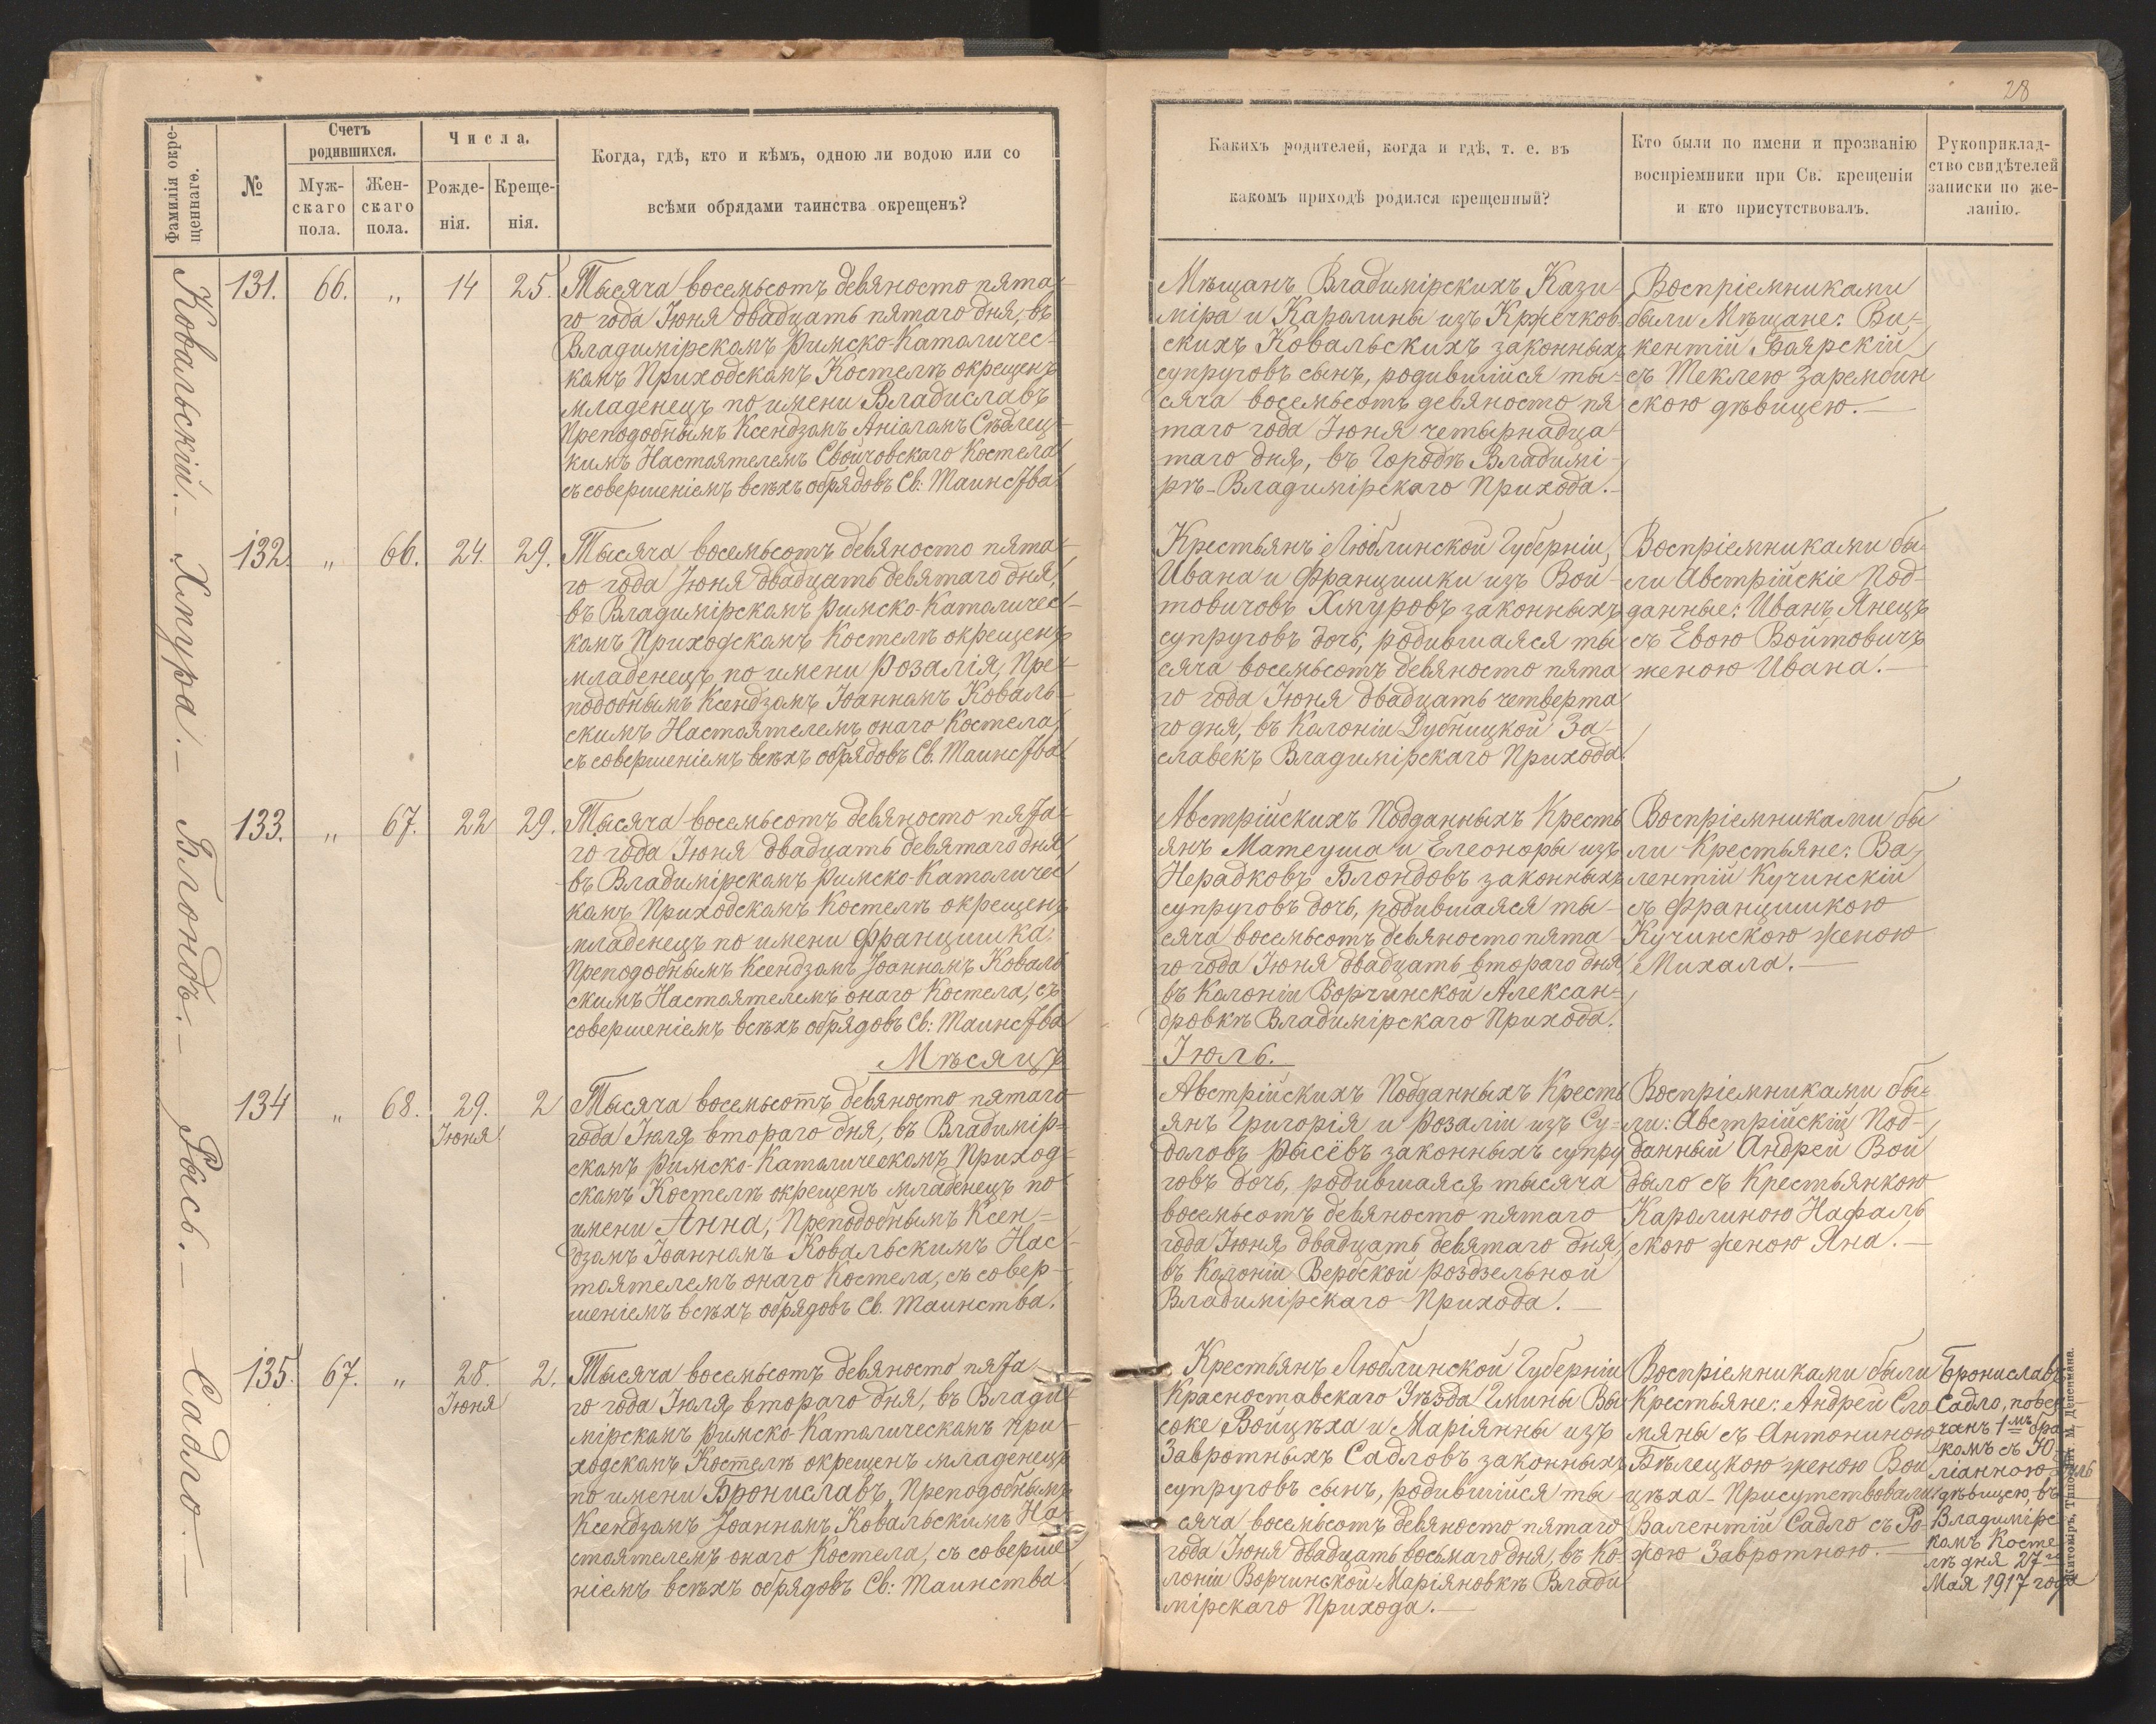 28
Фамилія окре-
щеннаго.
№
Счетъ
родившихся.
Муж-
скаго
пола.
Жен-
скаго
пола.
Числа.
Рожде-
нія.
Креще-
нія.
Когда, гдѣ, кто и кѣмъ, одною ли водою или со
всѣми обрядами таинства окрещенъ?
Какихъ родителей, когда и гдѣ, т. е. въ
какомъ приходѣ родился крещенный?
Кто были по имени и прозванію
воспріемники при Св. крещеніи
и кто присутствовалъ.
Рукоприклад-
ство свидѣтелей
записки по же-
ланію.
Ковальскій.—
131. 66. „ 14 25.
Тысяча восемьсотъ девяносто пята-
го года Іюня двадцать пятаго дня, въ
Владимірскомъ Римско-Католичес-
комъ Приходскомъ Костелѣ окрещенъ
младенецъ по имени Владиславъ
Преподобнымъ Ксендзомъ Сѣдлец-
кимъ Настоятелемъ Свойчовскаго Костела
съ совершеніемъ всѣхъ обрядовъ Св: Таинства.
Мѣщанъ Владимірскихъ Кази-
міра и Каролины изъ Кржечков-
скихъ Ковальскихъ законныхъ
супруговъ сынъ, родившійся ты-
сяча восемьсотъ девяносто пя
таго года Іюня четырнадца-
таго дня, въ Городѣ Владимі-
рѣ-Владимірскаго Прихода.—
Воспріемниками
были Мѣщане: Ви-
кентій Боярскій
съ Теклею Зарембин
скою дѣвицею.—
Хмура.—
132. „ 66. 24. 29.
Тысяча восемьсотъ девяносто пята-
го года Іюня двадцать девятаго дня,
въ Владимірскомъ Римско-Католичес-
комъ Приходскомъ Костелѣ окрещенъ
младенецъ по имени Розалія, Пре-
подобнымъ Ксендзомъ Іоанномъ Коваль-
скимъ Настоятелемъ онаго Костела,
съ совершеніемъ всѣхъ обрядовъ Св. Таинства
Крестьянъ Люблинской Губерніи,
Ивана и Францишки изъ Вой-
товичовъ Хмуровъ законныхъ
супруговъ дочь, родившаяся ты
сяча восемьсотъ девяносто пята
го года Іюня двадцать четверта
го дня, въ Колоніи Дубницкой За-
славекъ Владимірскаго Прихода.
Воспріемниками бы-
ли Австрійскіе Под-
данные: Иванъ Янецъ
съ Евою Войтовичъ
женою Ивана.—
Блондъ.—
133. „ 67. 22 29.
Тысяча восемьсотъ девяносто пята-
го года Іюня двадцать девятаго дня
въ Владимірскомъ Римско-Католичес
комъ Приходскомъ Костелѣ окрещенъ
младенецъ по имени Францишка,
Преподобнымъ Ксендзомъ Іоанномъ Коваль
скимъ Настоятелемъ онаго Костела, съ
совершеніемъ всѣхъ обрядовъ Св: Таинства
Австрійскихъ Подданныхъ Кресть
янъ Матеуша и Елеоноры изъ
Нерадковъ Блондовъ законныхъ
супруговъ дочь, родившаяся ты-
сяча восемьсотъ девяносто пята
го года Іюня двадцать втораго дня
въ Колоніи Ворчинской Алексан-
дровкѣ Владимірскаго Прихода.
Воспріемниками бы
ли Крестьяне: Ва-
лентій Кучинскій
съ Францишкою
Кучинскою женою
Михала.—
Мѣсяцъ
Іюль.
Рысь.—
134 „ 68. 29. Іюня 2
Тысяча восемьсотъ девяносто пятаго
года Іюля втораго дня, въ Владимір-
скомъ Римско-Католическомъ Приход-
скомъ Костелѣ окрещенъ младенецъ по
имени Анна, Преподобнымъ Ксен-
дзомъ Іоанномъ Ковальскимъ Нас-
тоятелемъ онаго Костела, съ совер-
шеніемъ всѣхъ обрядовъ Св. Таинства.
Австрійскихъ Подданныхъ Кресть
янъ Григорія и Розаліи изъ Су-
доловъ Рысёвъ законныхъ супру
говъ дочь, родившаяся тысяча
восемьсотъ девяносто пятаго
года Іюня двадцать девятаго дня,
въ Колоніи Вербской Роздзельной
Владимірскаго Прихода.—
Воспріемниками бы-
ли: Австрійскій Под-
данный Андрей Вой
дыло съ Крестьянкою
Каролиною Нафаль
скою женою Яна.—
Садло.—
135. 67. „ 28. Іюня 2.
Тысяча восемьсотъ девяносто пята
го года Іюля втораго дня, въ Влади
мірскомъ Римско-Католическомъ При
ходскомъ Костелѣ окрещенъ младенецъ
по имени Брониславъ, Преподобнымъ
Ксендзомъ Іоанномъ Ковальскимъ На-
стоятелемъ онаго Костела, съ соверше
ніемъ всѣхъ обрядовъ Св: Таинства.
Крестьянъ Люблинской Губерніи
Красноставскаго Уѣзда Гмины Вы
соке Войцѣха и Маріянны изъ
Завротныхъ Садловъ законныхъ
супруговъ сынъ, родившійся ты-
сяча восемьсотъ девяносто пятаго
года Іюня двадцать восьмаго дня, въ Ко-
лоніи Ворчинской Маріяновкѣ Влади
мірскаго Прихода.—
Воспріемниками были
Крестьяне: Андрей Сло
мяны съ Антониною
Бѣлецкою женою Вой
цѣха- Присутствовали:
Валентій Садло съ Ро-
жою Завротною.—
Брониславъ
Садло, повен
чанъ 1мъ бра
комъ съ Ю-
ліанною
дѣвицею, въ
Владимірс
комъ Косте
лѣ дня 27го
Мая 1917 года
Житоміръ, Типо-Лит. М. Дененмана.